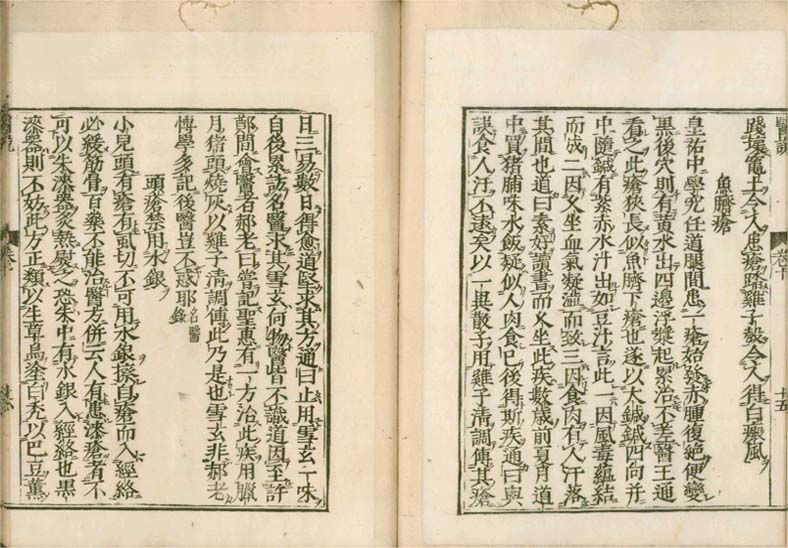 醫說
卷十
十五
踐壞竈土令人患瘡踏雞子殼令人得白癜風
魚臍瘡
皇祐中學究任道腿間患一瘡始發赤腫復絕便變
黑後穴則有黃水出四邊浮漿起累治不差醫王通
看之此瘡狹長似魚臍下瘡也遂以大鍼鍼四向并
中隨鍼有紫赤水汁出如豆汁言此一因風毒蘊結
而成二因久坐血氣凝澁而致三因食肉有人汗落
其間也道曰素好讀書而久坐此疾數歲前夏月道
中買猪脯味水飯疑似人肉食已後得斯疾通曰與
誤食人汗不遠矣以一異散子用雞子清調傅其瘡
日三易數日得愈道堅求其方通曰止用雪玄一味
自後累訪名醫求其雪玄何物醫皆不識道因至許
鄭間會醫者郝老曰嘗記聖惠有一方治此疾用臘
月猪頭燒灰以雞子清調傅此乃是也雪玄非郝老
博學多記後醫豈不惑耶名醫錄
頭瘡禁用水銀
小兒頭有瘡有虱切不可用水銀擦自瘡而入經絡
必緩筋骨百藥不能治醫方併云人有患漆瘡者不
可以朱漆器炙熱熨之恐朱中有水銀入經絡也黑
漆器則不妨此方正類以生草烏塗白禿以巴豆薰